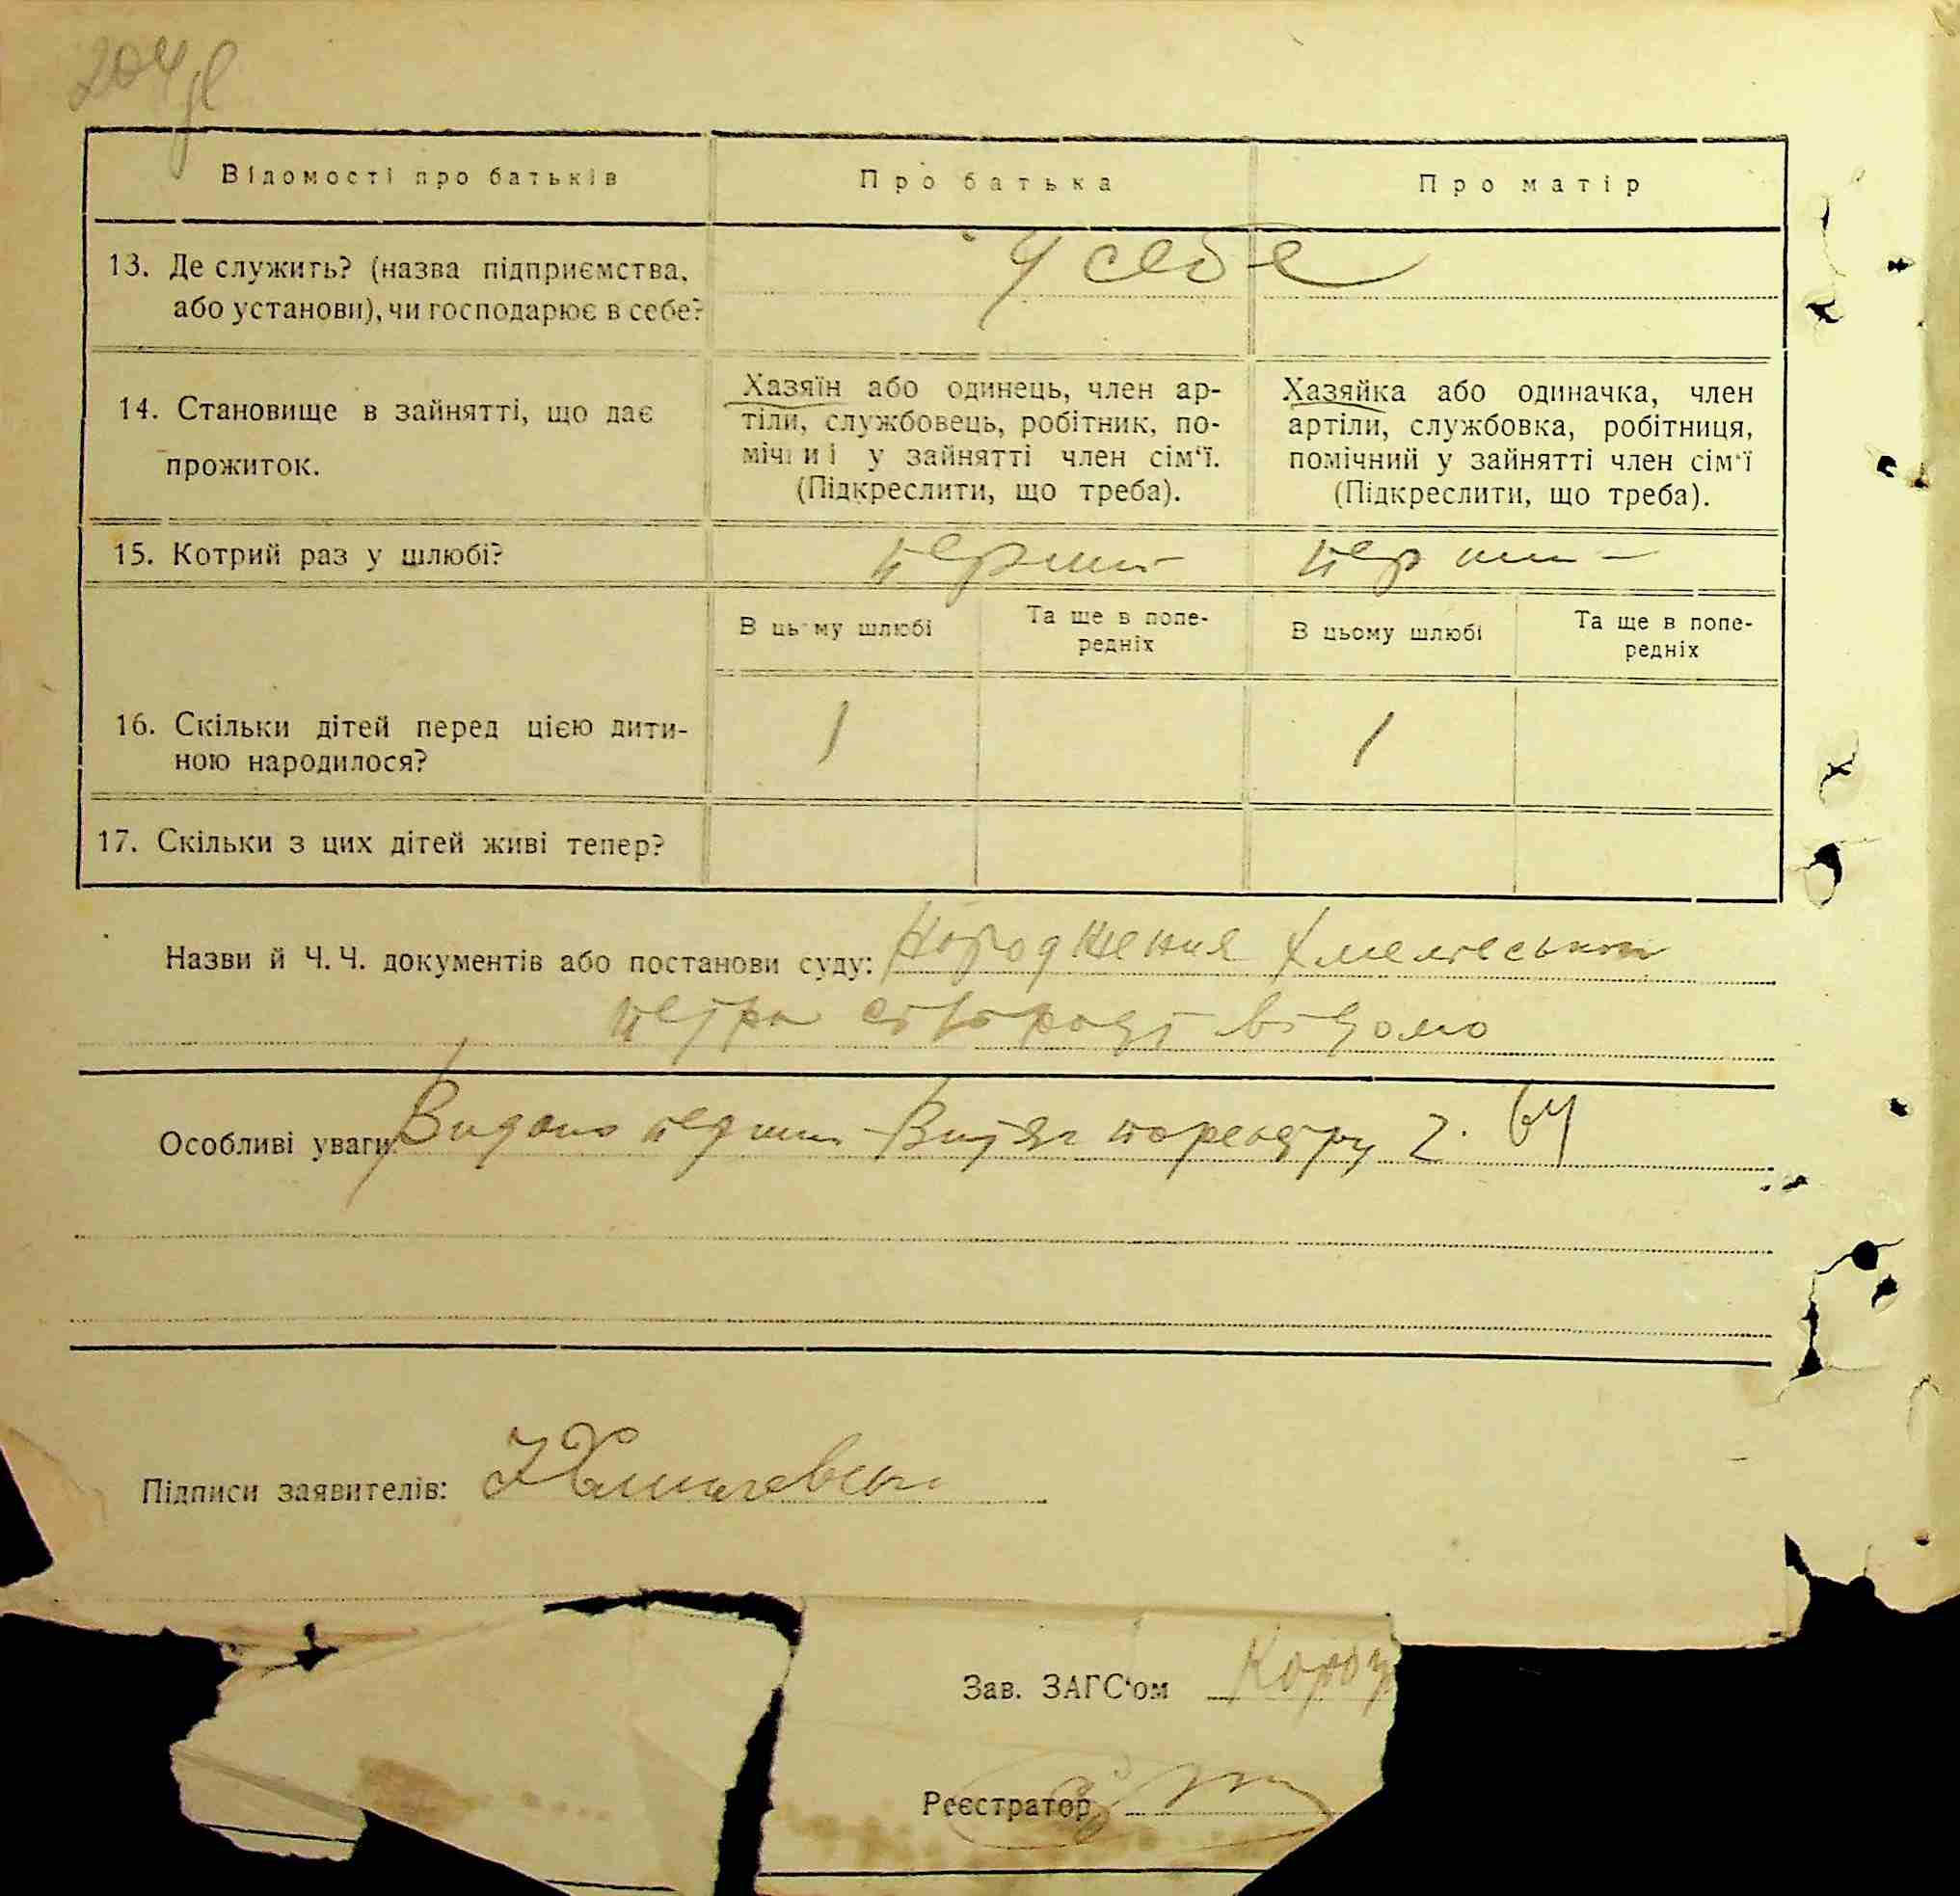 Відомості про батьків
Про батька
Про матір
13. Де служить? (назва підприємства,
або установи), чи господарює в себе?
У себе
14. Становище в зайнятті, що дає
прожиток.
Хазяїн або одинець, член ар-
тіли, службовець, робітник, по-
мічниі у зайнятті член сім‘ї.
(Підкреслити, що треба).
Хазяйка або одиначка, член
артіли, службовка, робітниця,
помічний у зайнятті член сім‘ї
(Підкреслити, що треба).
15. Котрий раз у шлюбі?
перший
перший
В цьому шлюбі
Та ще в попе-
редніх
В цьому шлюбі
Та ще в попе-
редніх
16. Скільки дітей перед цією дити-
ною народилося?
1
1
17. Скільки з цих дітей живі тепер?
Назви й Ч. Ч. документів або постанови суду: Народження
петра сільраді відомо
Особливі уваги: Видано перший Витяг 64
Підписи заявителів:
Зав. ЗАГС‘ом
Реєстратор